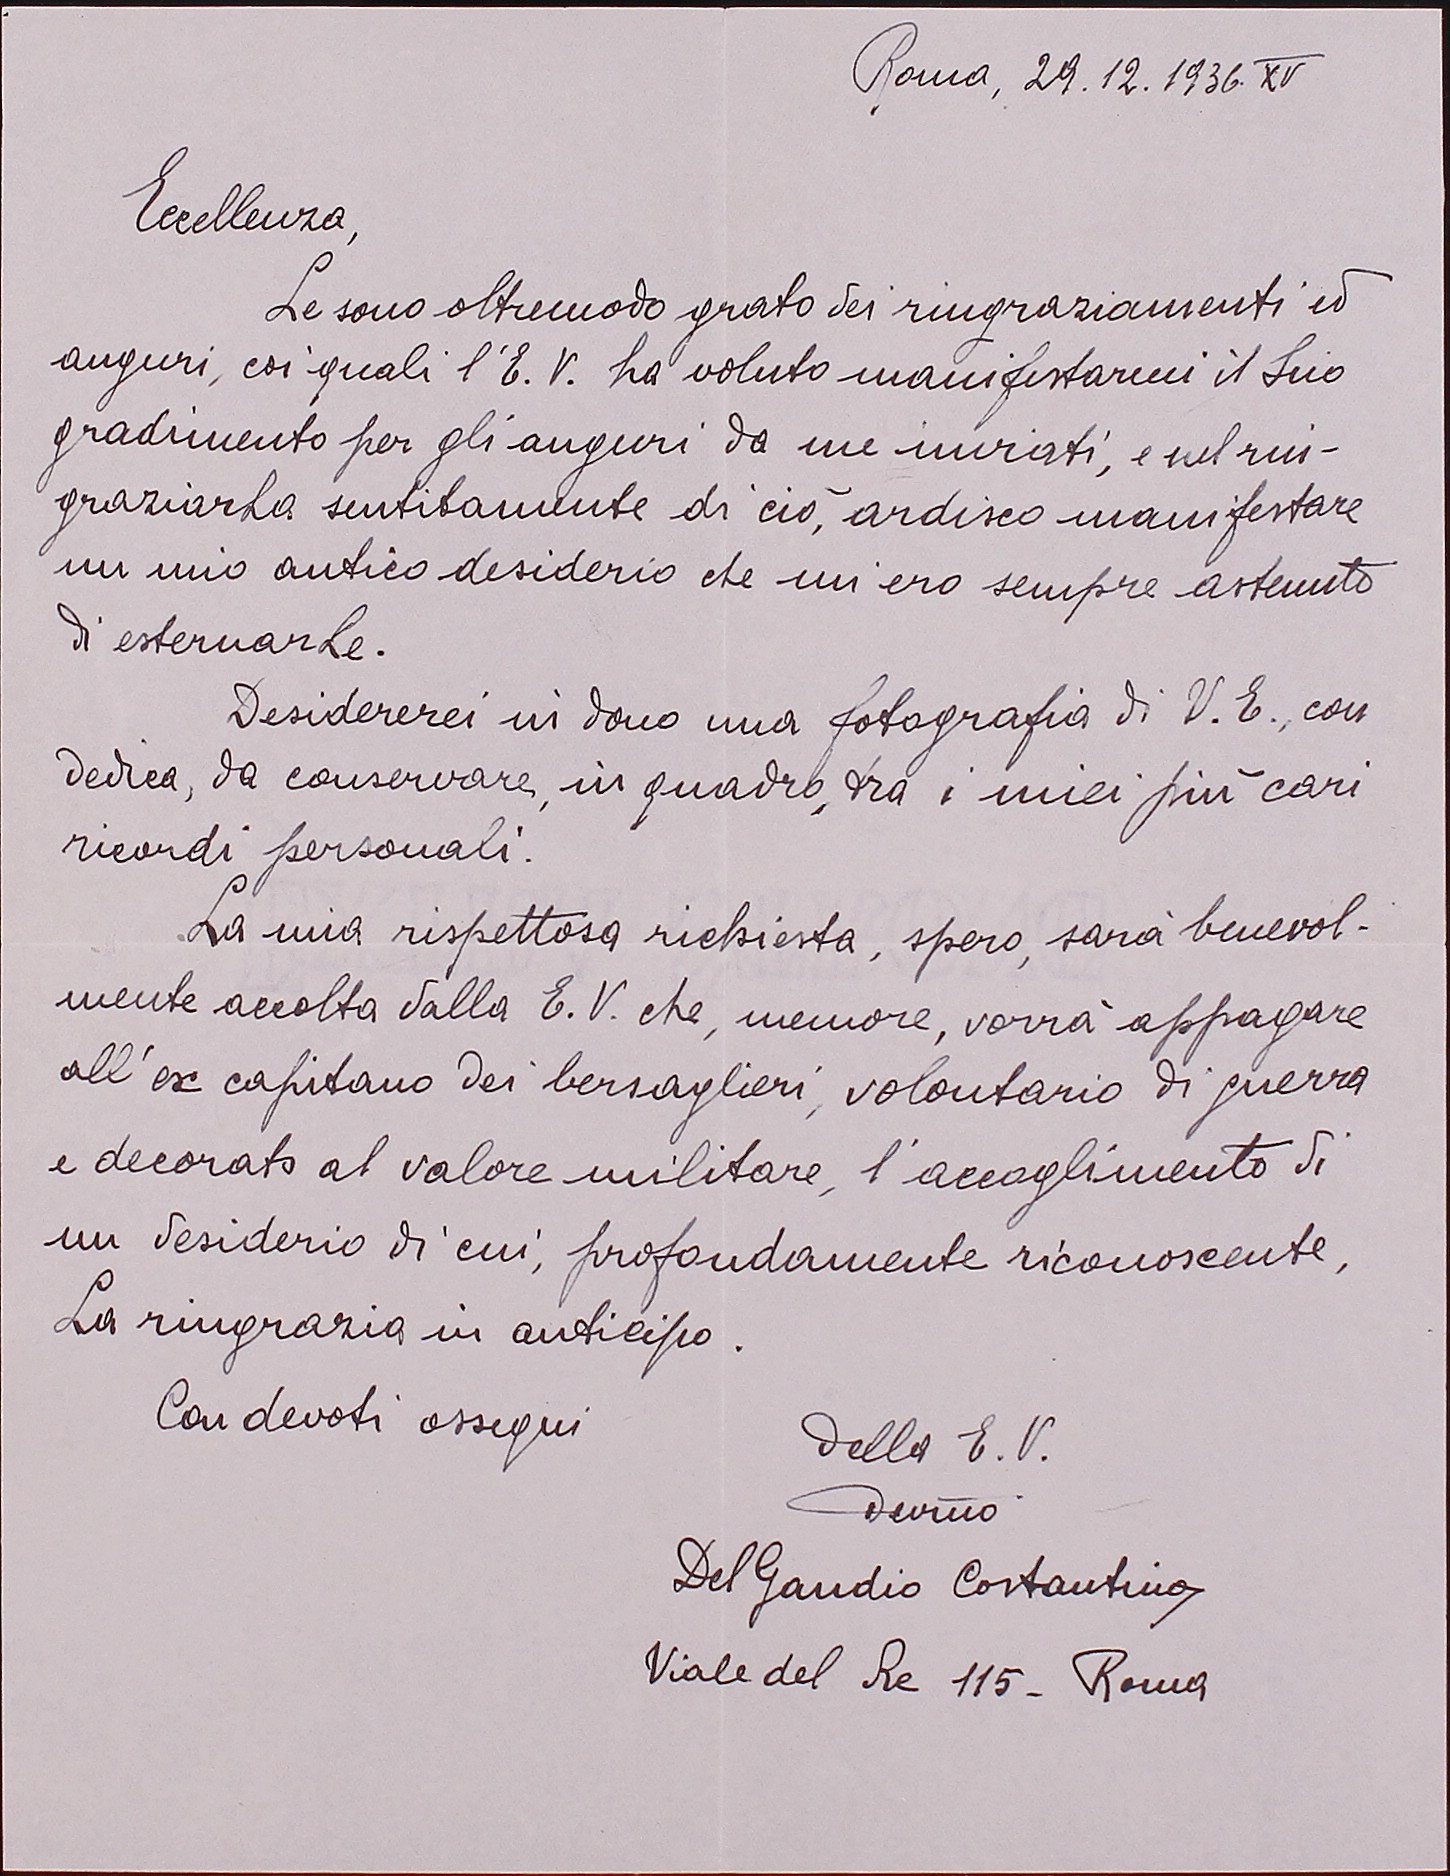 Roma, 29.12.1936. XV
Eccellenza,
Le sono oltremodo grato dei ringraziamenti ed
auguri, coi quali l'E. V. ha voluto manifestarmi il Suo
gradimento per gli auguri da me inviati, e nel rin-
graziarLa sentitamente di ciò, ardisco manifestare
un mio antico desiderio che mi ero sempre astenuto
di esternarLe.
Desidererei in dono una fotografia di V. E., con
dedica, da conservare, in quadro, tra i miei più cari
ricordi personali.
La mia rispettosa richiesta, spero, sarà benevol-
mente accolta dalla E. V. che, memore, vorrà appagare
all'ex capitano dei bersaglieri, volontario di guerra
e decorato al valore militare, l'accoglimento di
un desiderio di cui, profondamente riconoscente,
La ringrazia in anticipo.
Con devoti ossequi
Della E. V.
Dev̄mo
Del Gaudio Costantino
Viale del Re 115 - Roma